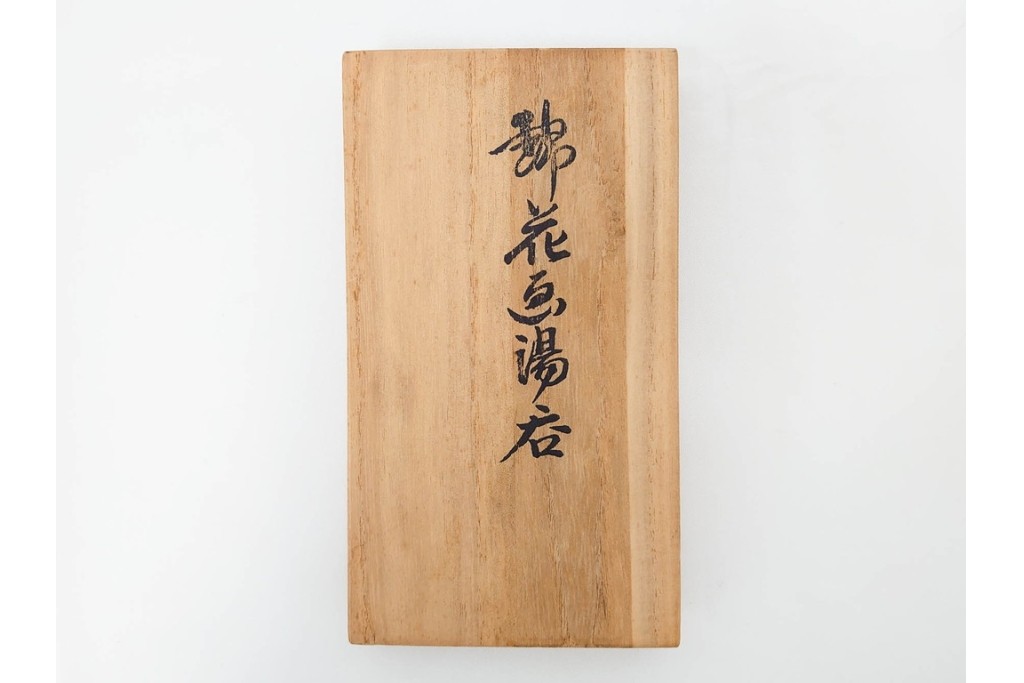 錦花画湯呑